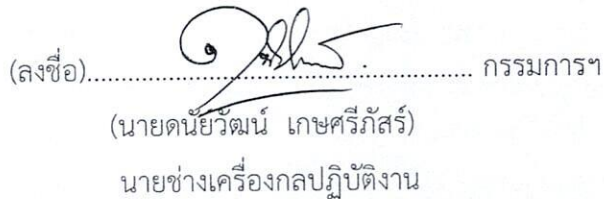 (ลงชื่อ)................................................ กรรมการฯ
(นายดนัยวัฒน์ เกษศรีภัสร์)
นายช่างเครื่องกลปฏิบัติงาน